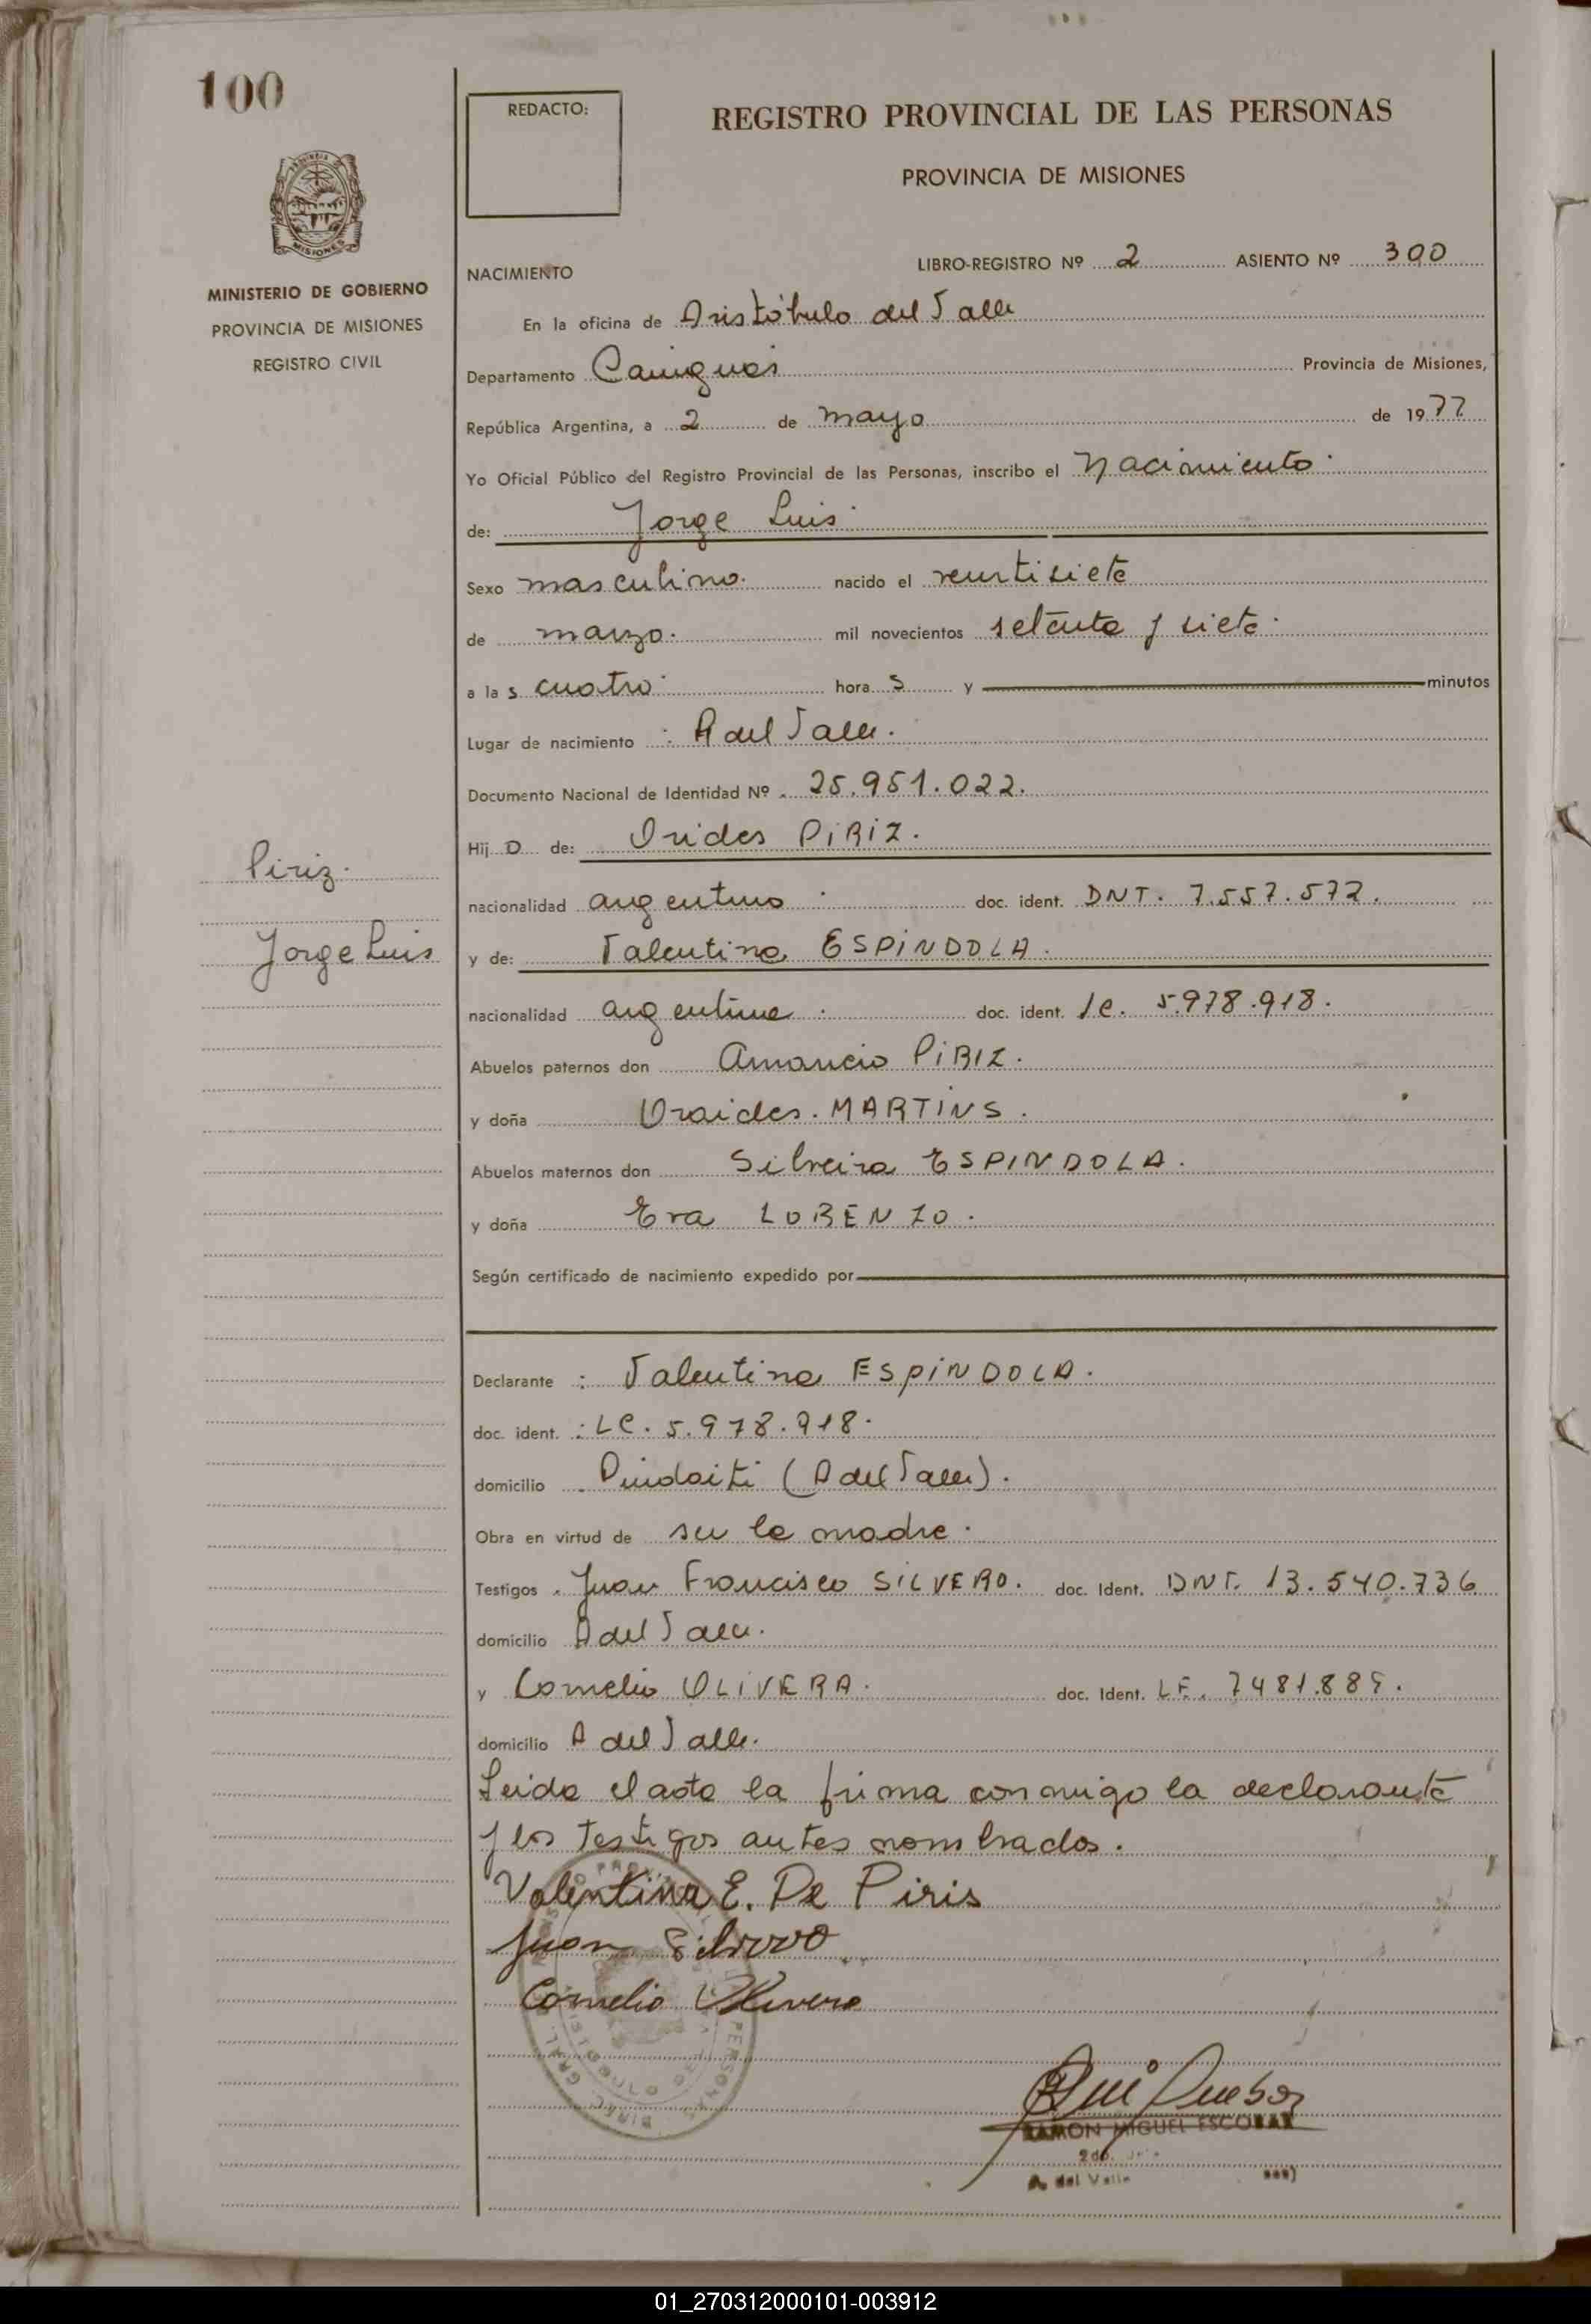 100
REDACTO:
REGISTRO PROVINCIAL DE LAS PERSONAS
PROVINCIA DE MISIONES
MINISTERIO DE GOBIERNO
PROVINCIA DE MISIONES
REGISTRO CIVIL
NACIMIENTO
LIBRO-REGISTRO Nº 2 ASIENTO Nº 300
En la oficina de Aristóbulo del Valle
Departamento Cainguás Provincia de Misiones,
República Argentina, a 2 de mayo de 1977
Yo Oficial Público del Registro Provincial de las Personas, inscribo el Nacimiento
de: Jorge Luis
Sexo masculino. nacido el veintisiete
de marzo. mil novecientos setenta y siete.
a las cuatro horas y minutos
Lugar de nacimiento : A del Valle.
Documento Nacional de Identidad Nº 25.951.022.
Hijo de: PIRIZ.
Piriz.
nacionalidad argentino doc. ident. DNI. 7.557.572.
Jorge Luis
y de: Valentina ESPINDOLA.
nacionalidad argentina doc. ident. LC. 5.978.918.
Abuelos paternos don Amancio PIRIZ.
y doña MARTINS.
Abuelos maternos don Silveira ESPINDOLA.
y doña Eva LORENZO.
Según certificado de nacimiento expedido por
Declarante : Valentina ESPINDOLA.
doc. ident. : LC. 5.978.918.
domicilio (A del Valle).
Obra en virtud de ser la madre.
Testigos Juan Francisco SILVERO. doc. Ident. DNI. 13.540.736
domicilio A del Valle.
y Cornelio OLIVERA. doc. Ident. LE. 7481.885.
domicilio A del Valle.
Leida el acta la firma conmigo la declarante
y los testigos antes nombrados.
Valentina E. De Piris
Juan Silvero
Cornelio Olivera
RAMON MIGUEL ESCOBAR
A. del Valle
01_270312000101-003912